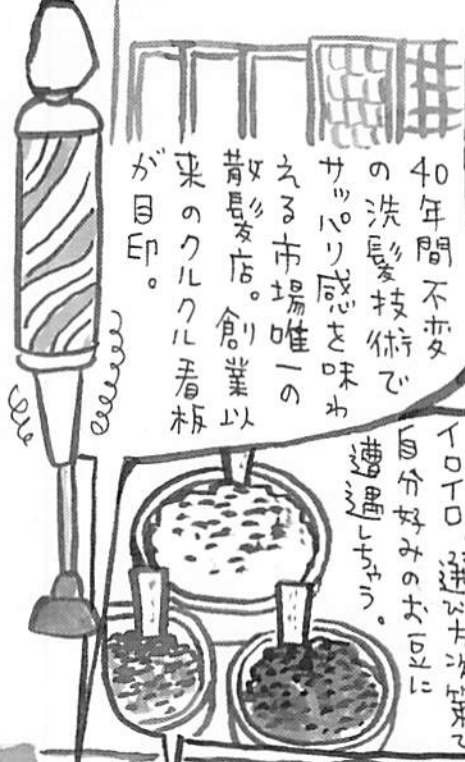 40年間不変
の洗髪技術で
サッパリ感を味わ
える市場唯一の
散髪店。創業以
来のクルクル看板
が目印。
イロイロ。選び方次第で
自分好みのお豆に
遭遇しちゃう。